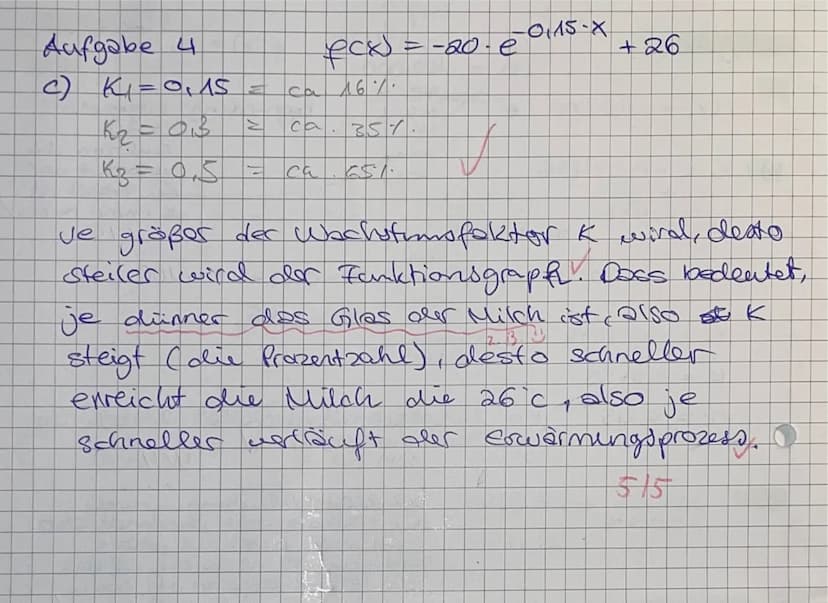 Aufgabe 4 f(x) = -20 · e^-0,15·x + 26
c) K1 = 0,15 = ca 16%.
K2 = 0,3 = ca. 35%.
K3 = 0,5 = ca. 65%.
Je größer der Wachstumsfaktor K wird, desto
steiler wird der Funktionsgraph. Dass bedeutet,
je dünner das Glas der Milch ist, also K
steigt (die Prozentzahl), desto schneller
erreicht die Milch die 26°C, also je
schneller verläuft der Erwärmungsprozess.
5/5